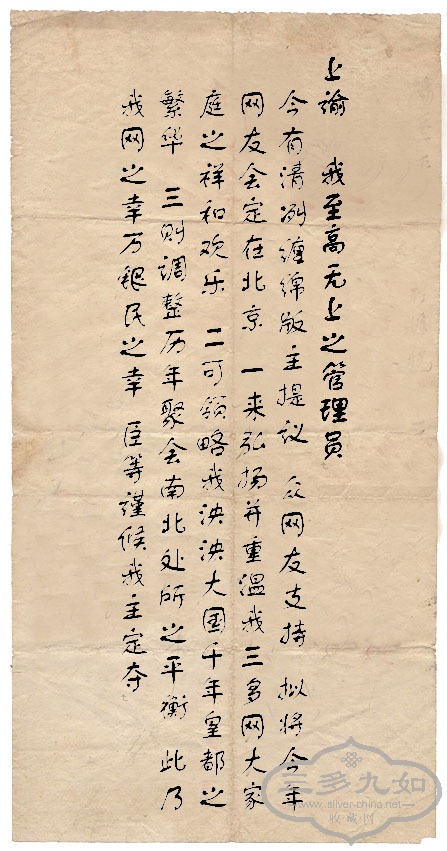 上谕 我至高无上之管理员
今有清冽缠绵版主提议 众网友支持 拟将今年
网友会定在北京 一来弘扬并重温我三多网大家
庭之祥和欢乐 二可领略我泱泱大国千年皇都之
繁华 三则调整历年聚会南北处所之平衡 此乃
我网之幸万银民之幸 臣等谨候我主定夺
三多九如
www.silver-china.net
收藏网